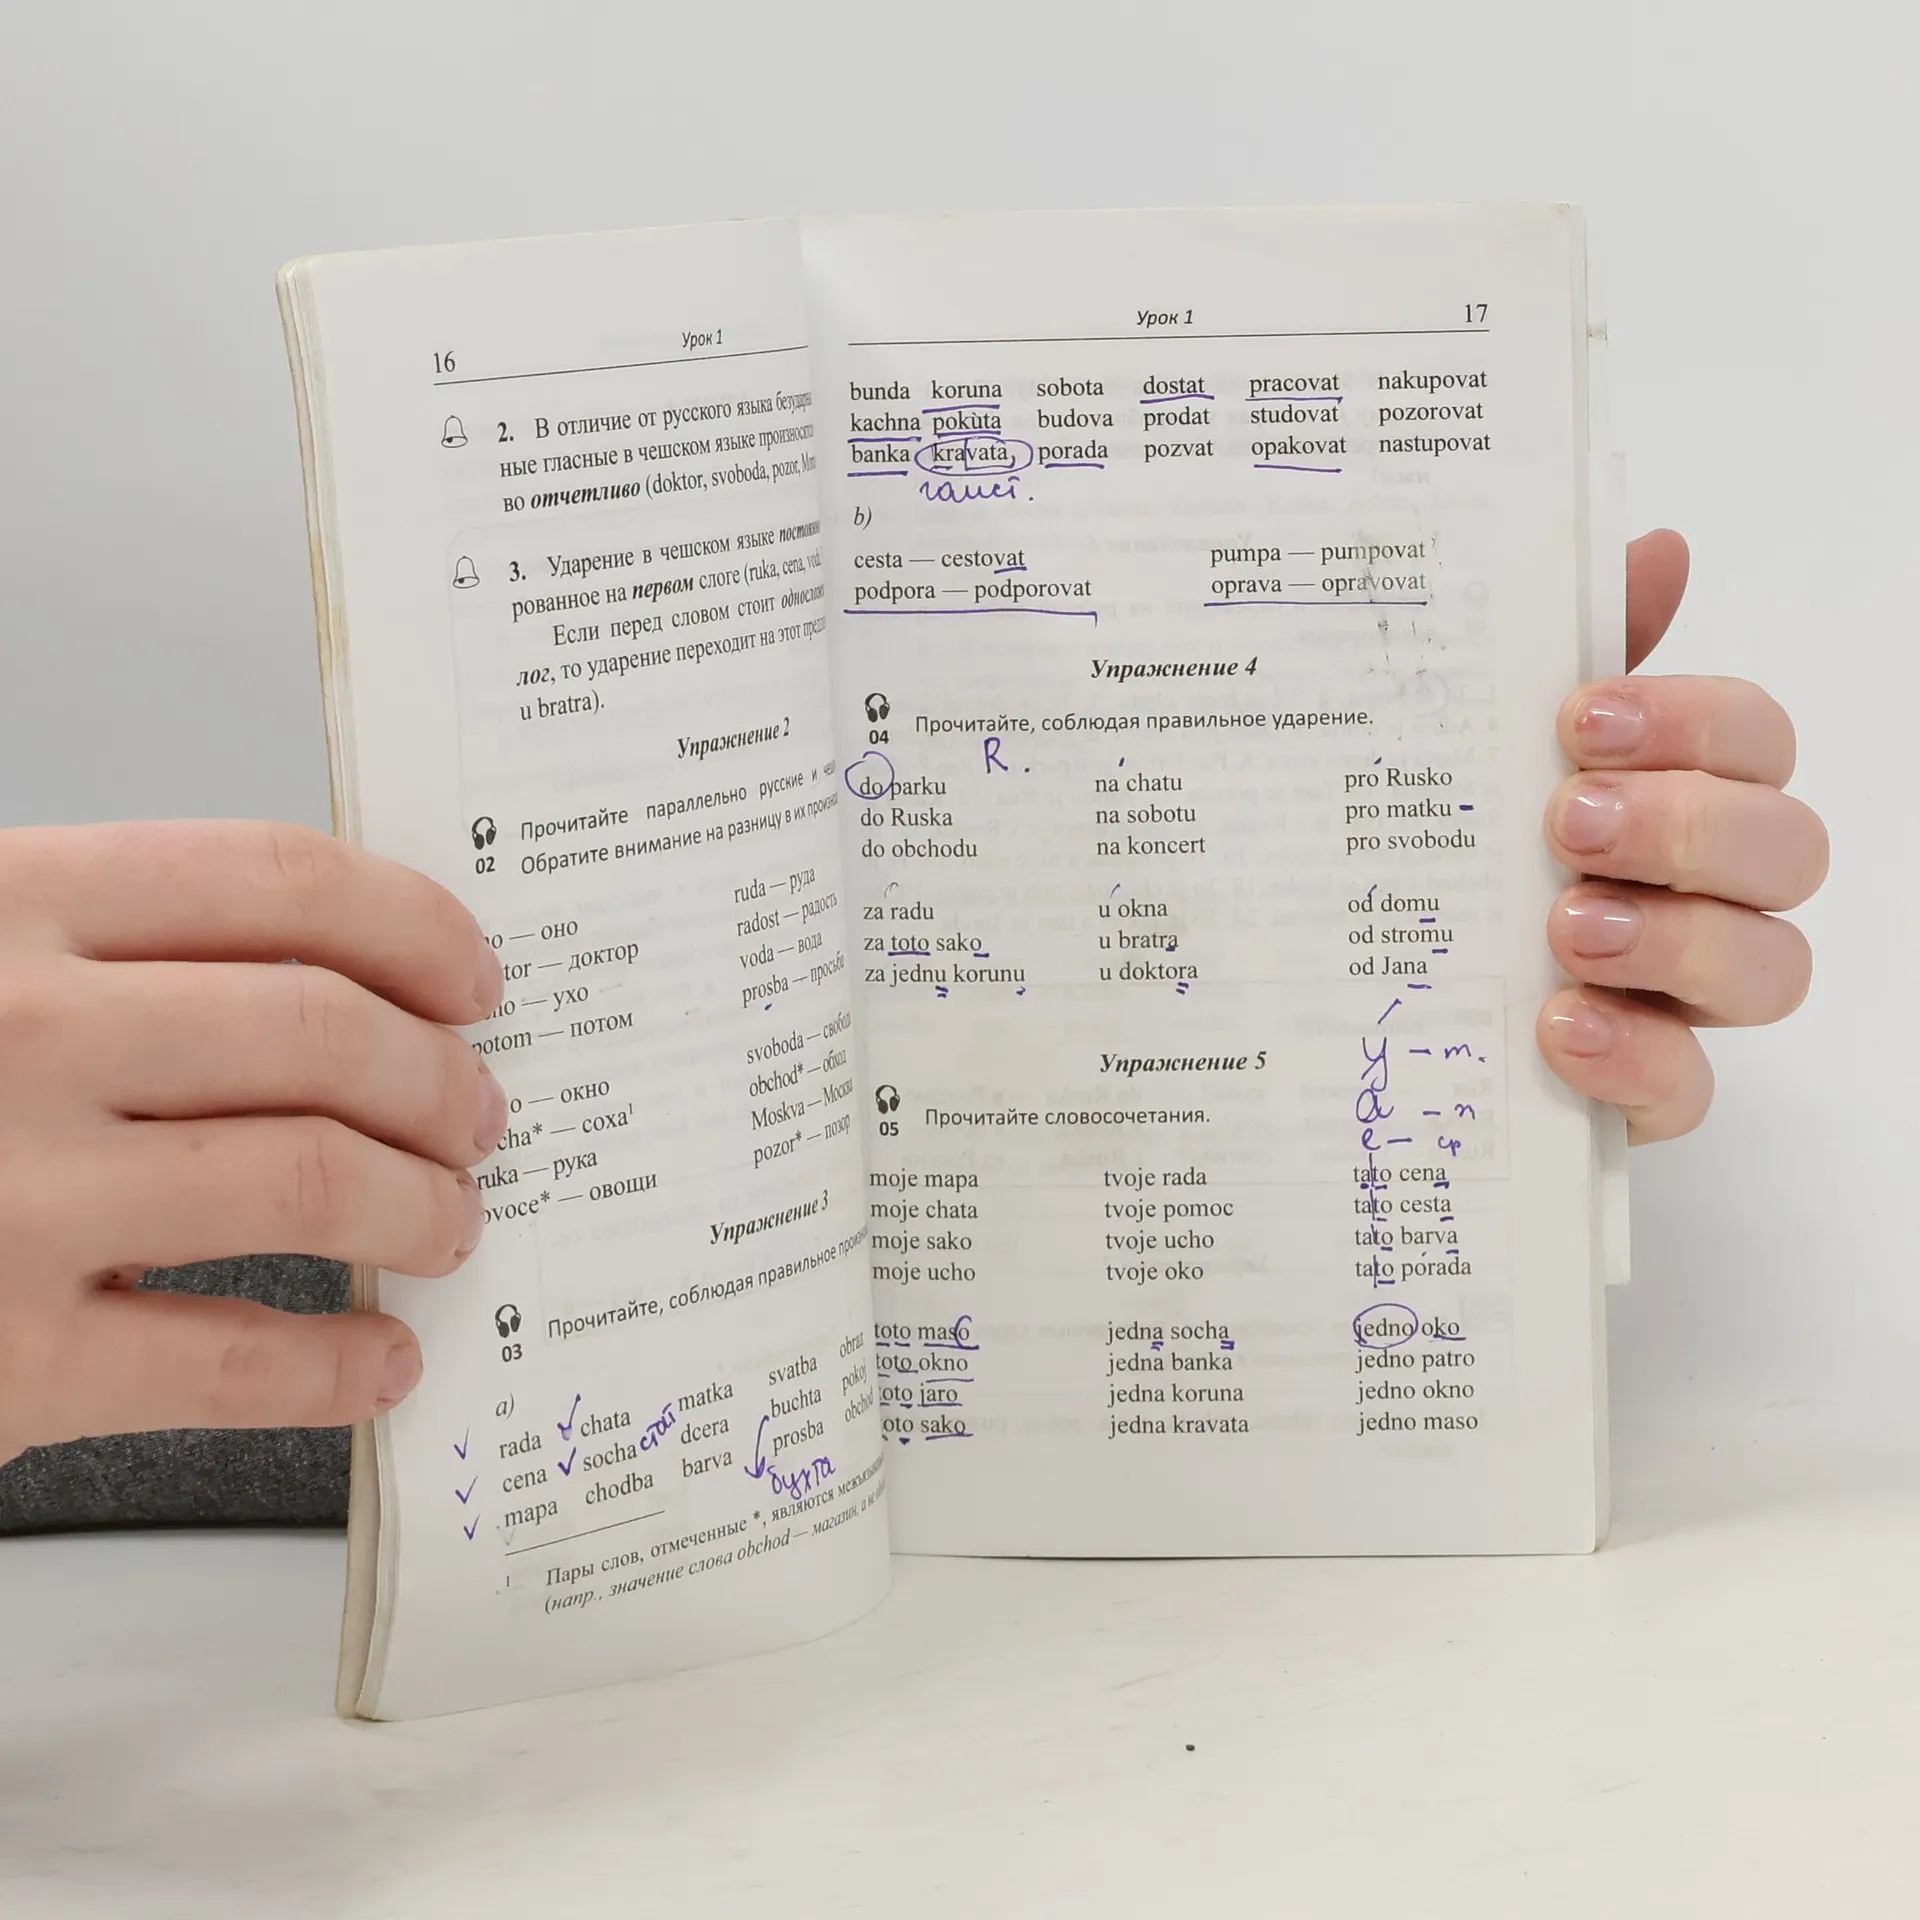 16
Урок 1
2. В отличие от русского языка
ные гласные в чешском языке
во отчетливо (doktor, svoboda, pozor,
3. Ударение в чешском языке
рованное на первом слоге (ruka, cena,
Если перед словом стоит
лог, то ударение переходит на этот
u bratra).
Упражнение 2
02 Прочитайте параллельно русские и
Обратите внимание на разницу в их
— оно ruda — руда
— доктор radost — радость
— ухо voda — вода
potom — потом prosba — просьба
— окно svoboda —
— соха¹ obchod* — обход
ruka — рука Moskva — Москва
ovoce* — овощи pozor* — позор
Упражнение 3
03 Прочитайте, соблюдая правильное
a)
rada chata matka svatba obraz
cena socha стой dcera buchta pokoj
mapa chodba barva prosba obchod
бухта
1 Пары слов, отмеченные *, являются
(напр., значение слова obchod — магазин, а не
Урок 1
17
bunda koruna sobota dostat pracovat nakupovat
kachna pokuta budova prodat studovat pozorovat
banka kravata, porada pozvat opakovat nastupovat
b)
cesta — cestovat pumpa — pumpovat
podpora — podporovat oprava — opravovat
Упражнение 4
04 Прочитайте, соблюдая правильное ударение.
R.
do parku na chatu pro Rusko
do Ruska na sobotu pro matku
do obchodu na koncert pro svobodu
za radu u okna od domu
za toto sako u bratra od stromu
za jednu korunu u doktora od Jana
Упражнение 5
05 Прочитайте словосочетания.
у — т.
а — п
е — ср
moje mapa tvoje rada tato cena
moje chata tvoje pomoc tato cesta
moje sako tvoje ucho tato barva
moje ucho tvoje oko tato porada
toto maso jedna socha jedno oko
toto okno jedna banka jedno patro
toto jaro jedna koruna jedno okno
toto sako jedna kravata jedno maso